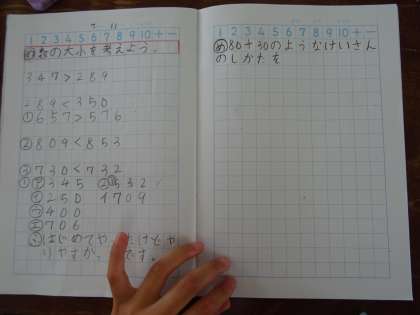 1 2 3 4 5 6 7 8 9 10 + −
め 数の大小を考えよう。
347>289
289<350
① 657>576
② 809<853
③ 730<732
① ア 345 ② 532
イ 250 1709
ウ 400
エ 706
はじめてや
りやすか です。
1 2 3 4 5 6 7 8 9 10 + −
め 80+30のようなけいさん
のしかたを